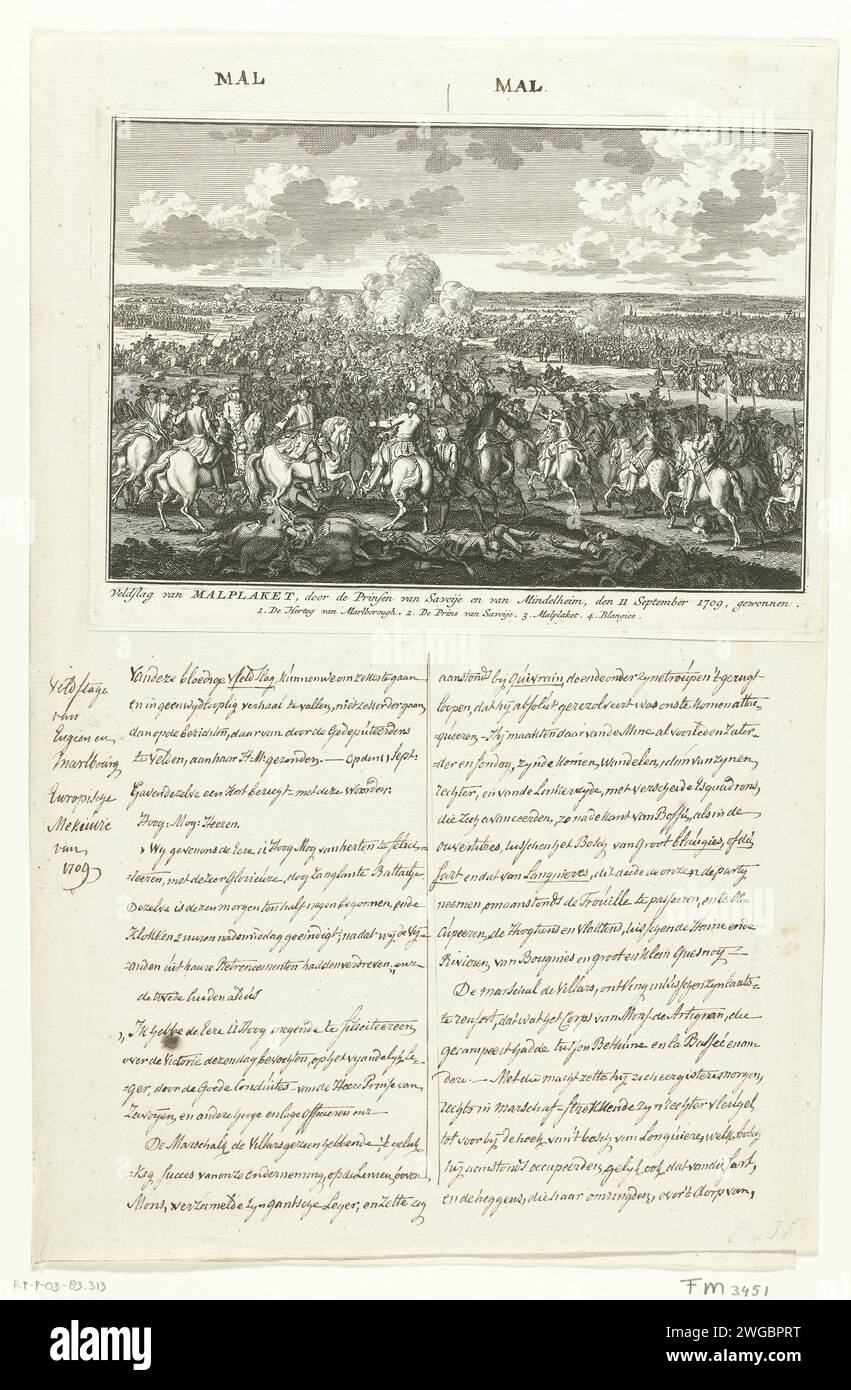 MAL
MAL
Veldslag van MALPLAKET, door de Prinsen van Savoije en van Mindelheim, den 11 September 1709, gewonnen.
1. De Hertog van Marlborough. 2. De Prins van Savoije. 3. Malplaket. 4. Blangies.
Veldslage
van
Eugeen en
Marlbourg
Europische
van
1709
van deze bloedige veldslag, kunnen we om zeker te gaan
en in geen wydlooplig verhaal te vallen, niet zekerder gaan,
dan op de berichten, daar van door de Gedeputeerdens
te velden, aan haar H:M: gezonden. — op den 11 Sept:
Gaven dezelve een kort berugt met deze woorden:
Hoog: Mog: Heeren.
Wy geven ons de Eere U Hoog Mog van herten te felici-
teeren, met de zeer Glorieuze, dog zanglante Battailje
Dezelve is dezen morgen ten half negen begonnen, en de
klokken 2 uuren nademiddag geeindigt; na dat wy de vy-
anden uit haare Retrencementen hadden verdreven, enz
de twede luiden aldus
„Ik hebbe de Eere U Hoog mogende te feliciteeren
over de Victorie dezen dag bevochten, op het vyandelyk le-
ger, door de Goede Conduites van de Heere Prinse van
Zavoyen, en andere hooge en lage officieren enz
De Marschalk de Villars gezien hebbende 't geluk-
kig succes van onze onderneming, op de Linien boven
Mons, verzamelde zyn gantsche Leger, en zette zig
aanstonds by Quivrain, doende onder zyne troupen 't gerugt
loopen, dat hy absolut geresolveert was onste komen atta-
queeren. Hy maakten daar van de Mine al voorleden Zater-
der en sondag, zynde komen, wandelen, dan van zynen
rechter, en van de Linkerzyde, met verscheide Esquadrons,
die zich avanceerden, zo na de kant van Bossu, als in de
ouvertures, tusschen het Bosch van groot Blaugies, of du
sart en dat van Langnieres, dit deide de onzen de party
neemen, om aanstonds de Trouille te passeeren, en te oc-
cupeeren, de Hoogtens en Vlaktens, tusschen de Haine en de
Rivieren van Bougnies en groot en klein Quesnoy
De marschal de Villars, ontving in tusschen zyn laats-
te renfort, dat was het Corps van Mons: de Artignan, die
gecampeert hadde tussen Bethune en la Bassée en an-
dere. — Met die macht zette hy zich eergisteren morgen,
rechts in marschaf – strekkende zyn rechter vleugel
tot voor by de hoek van 't bosch van Longuiere, welk bosch
hy aanstonds occupeerden, gelyk ook dat van du sart,
en de heggens, die haar omringden, over 't dorp van,
RP-P-OB-83.313
FM 3451
alamy
Image ID: 2WGBPRT
www.alamy.com